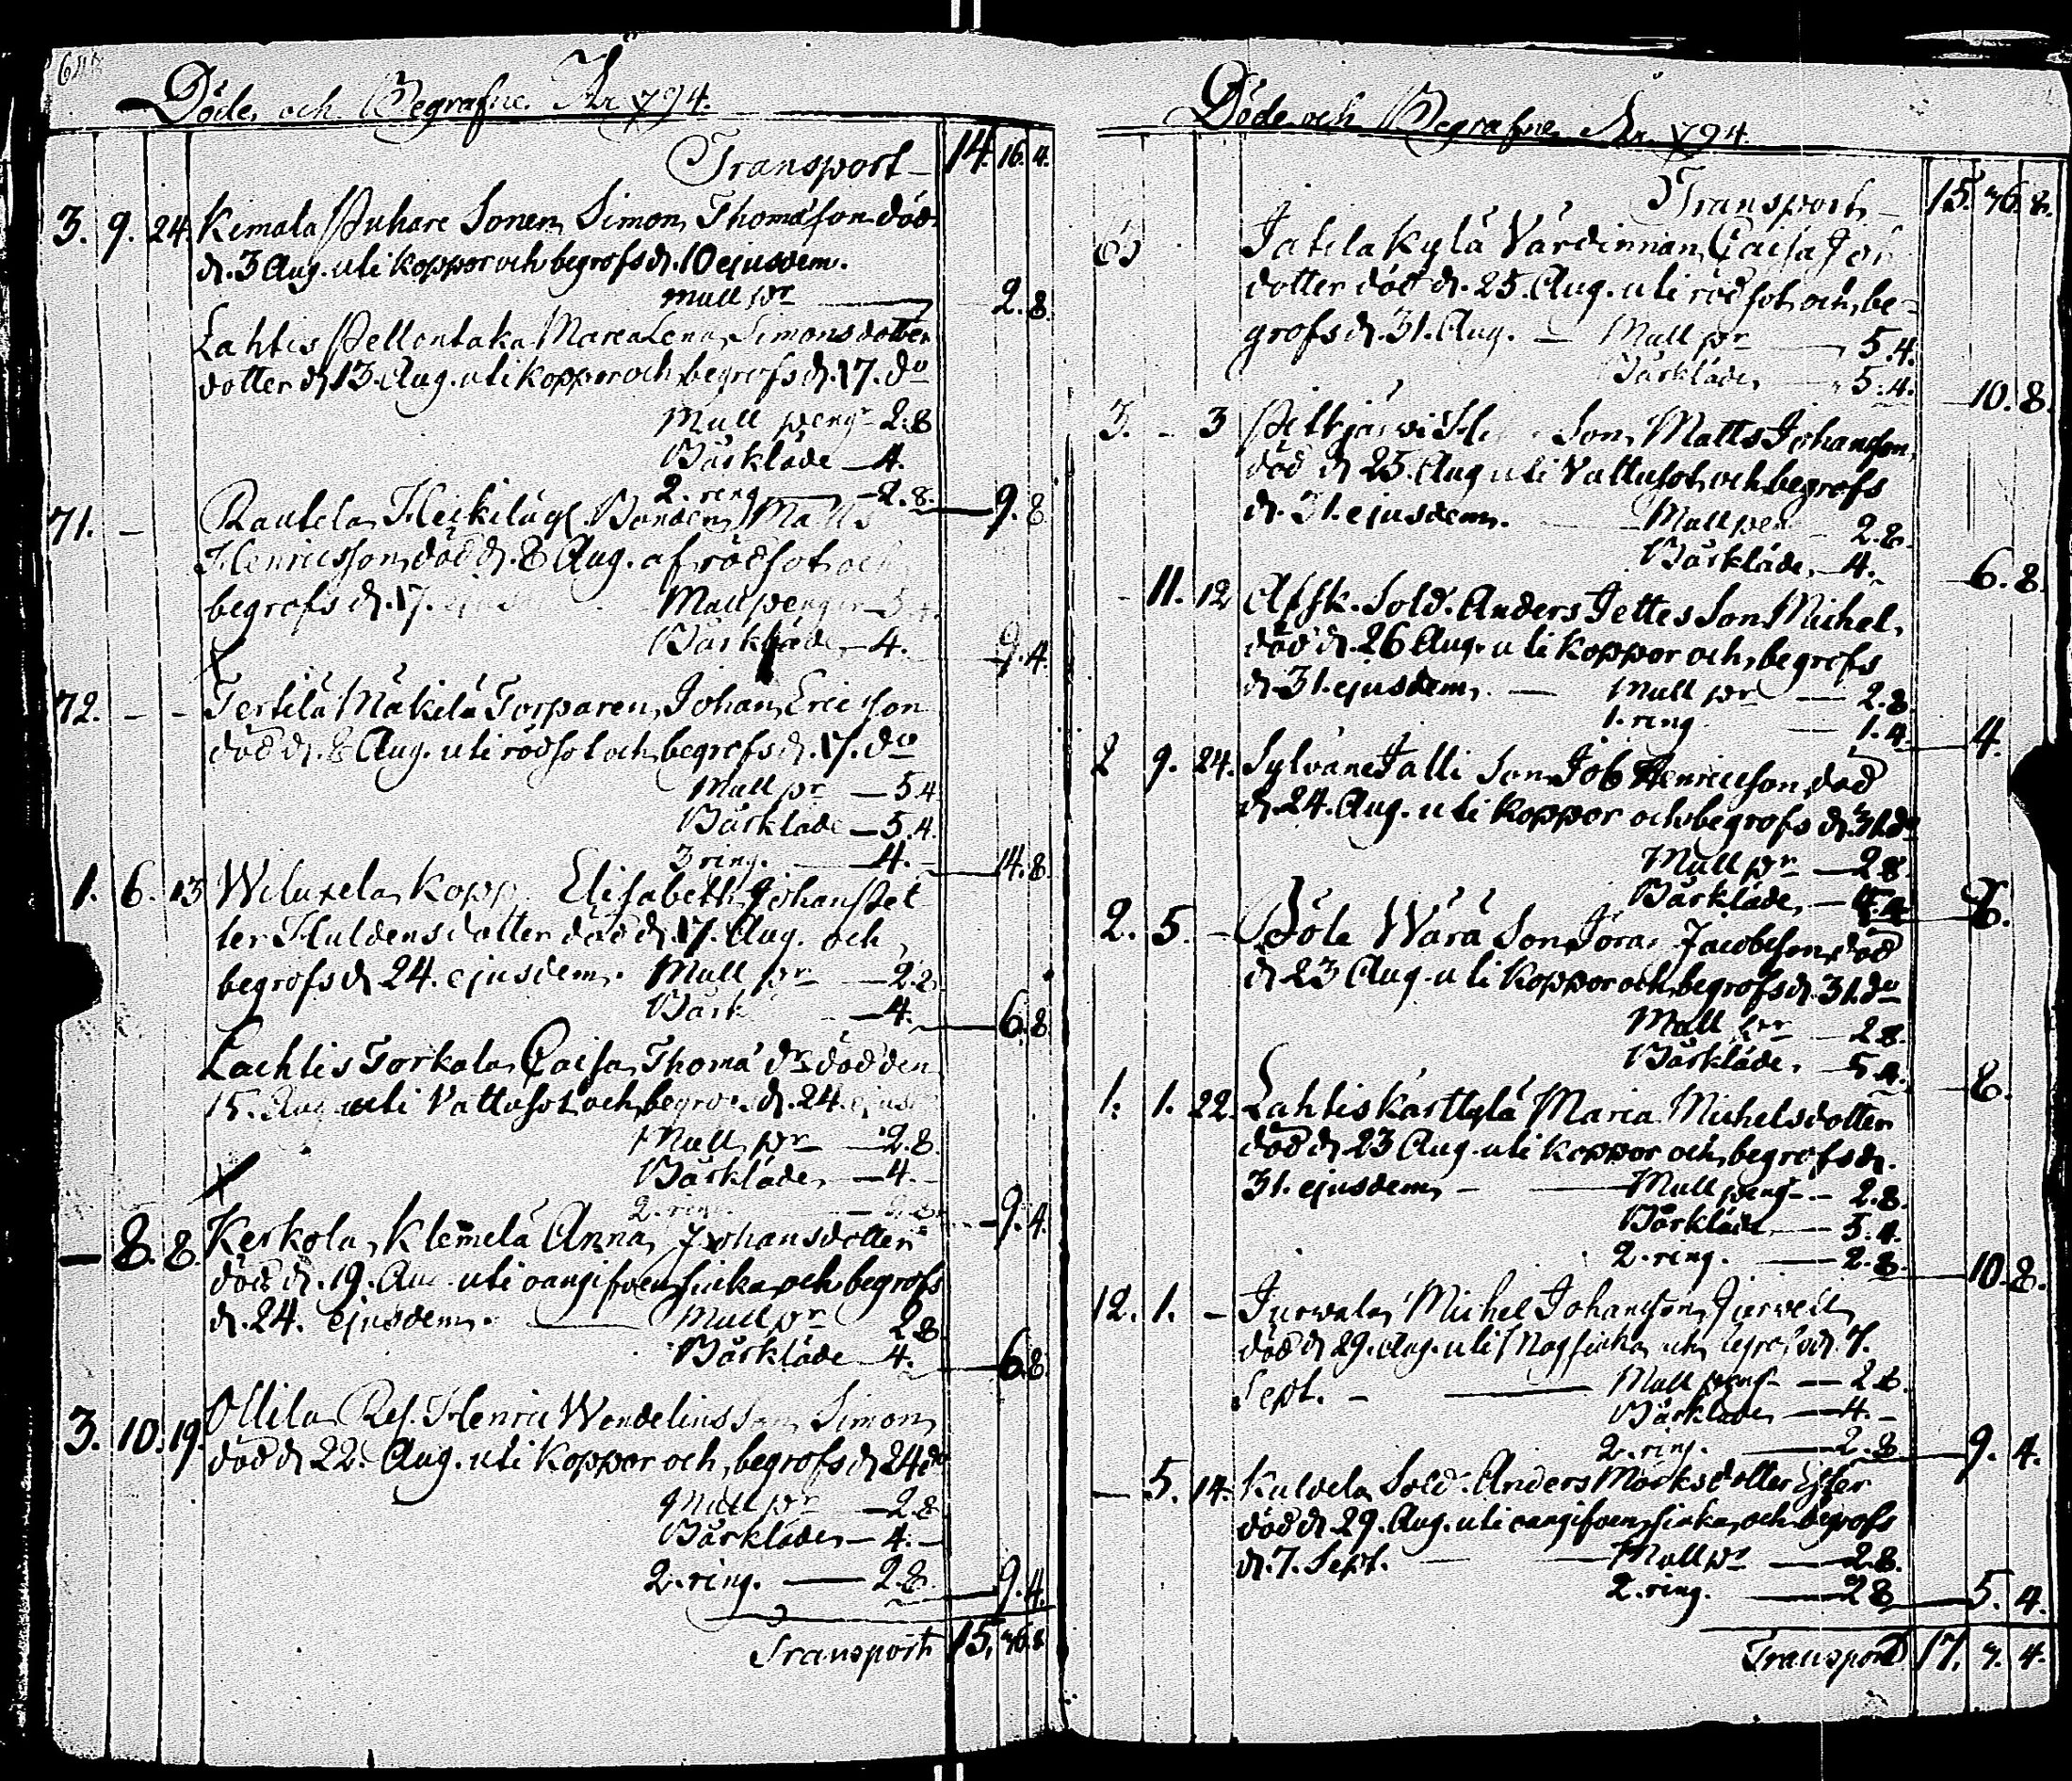 Döde och Begrafne År 794.
Transport 14. 16. 4.
3. 9. 24. Kemala Puhare Sonen Simon Thomasson död
d. 3 Aug. uti koppor och begrofs d. 10 ejusdem.
Mull pr 2. 8.
Lahtis Pellontaka Maria Lena Simonsdotter
dotter d 13. Aug. uti koppor och begrofs d. 17. do
Mull pengr 2. 8
Bårkläde 4.
2. ring 2. 8. 9. 8
71. - Rautela Heikilä Bonden Matts
Henricsson död d. 8 Aug. af rödsot och
begrofs d. 17.
Mull penger 5. 4.
Bårkläde 4. 9. 4.
72. - - Tertilä Mäkilä Torparen Johan Ericsson
död d. 8 Aug. uti rödsot och begrofs d. 17. do
Mull pr 5. 4
Bårkläde 5. 4.
3 ring. 4. 14. 8
1. 6. 13 Elisabeth Johan Pet
ter Huldens dotter död d. 17. Aug. och
begrofs d 24. ejusdem. Mull pr 2. 2
Bårk 4. 6. 8
Lachtis Torkala Caisa Thomæ dr död den
15. Aug uti Vattusot och begrofs d. 24.
Mull pr 2. 8.
Bårkläde 4.
2. ring 2. 8. 9. 4.
- 8. 8. Kerkola Klemelä Anna Johansdotter
död d. 19. Aug. uti oangifven siuka och begrofs
d. 24. ejusdem. Mull pr 2. 8
Bårkläde 4. 6. 8
3. 10. 19. Ollila Henric Wendelins Son Simon
död d 22. Aug. uti koppor och begrofs d 24 do
Mull pr 2. 8
Bårkläde 4.
2. ring. 2. 8. 9. 4.
Transport 15. 36. 8.
Döde och Begrafne År 794.
Transport 15. 36. 8.
Jatila Kylä Värdinnan Caisa
dotter död d. 25. Aug. uti rödsot och be-
grofs d. 31. Aug. Mull pr 5. 4.
Bårkläde 5. 4. 10. 8.
3. - 3 Son Matts Johansson
död d 25. Aug uti Vattusot och begrofs
d. 31. ejusdem. Mull pen 2. 8.
Bårkläde 4. 6. 8.
- 11. 12 Afsk. Sold. Anders Jettes Son Michel
död d. 26 Aug. uti koppor och begrofs
d. 31. ejusdem. Mull pr 2. 8.
1. ring 1. 4. 4.
2 9. 24. Sylväne Jalli Son Job Henricsson död
d. 24. Aug. uti koppor och begrofs d. 31. do
Mull pr 2. 8.
Bårkläde 5. 4 8.
2. 5. - Böle Wärä Son Jacobsson död
d 23 Aug. uti koppor och begrofs d. 31. do
Mull pr 2. 8.
Bårkläde 5. 4. 8.
1. 1. 22. Lahtis Karttylä Maria Michelsdotter
död d. 23 Aug. uti koppor och begrofs d.
31. ejusdem Mull peng 2. 8.
Bårkläde 5. 4.
2. ring. 2. 8. 10. 8.
12. 1. - Jurvala Michel Johansson
död d 29. Aug. uti d. 7.
Sept. Mull peng 2. 8.
Bårkläde 4.
2. ring. 2. 8 9. 4.
- 5. 14. Kulvela Sold. Anders Mörks dotter Ester
död d 29. Aug. uti oangifven siuka och begrofs
d. 7. Sept. Mull pr 2. 8.
2. ring. 2 8 5. 4.
Transport 17. 7. 4.